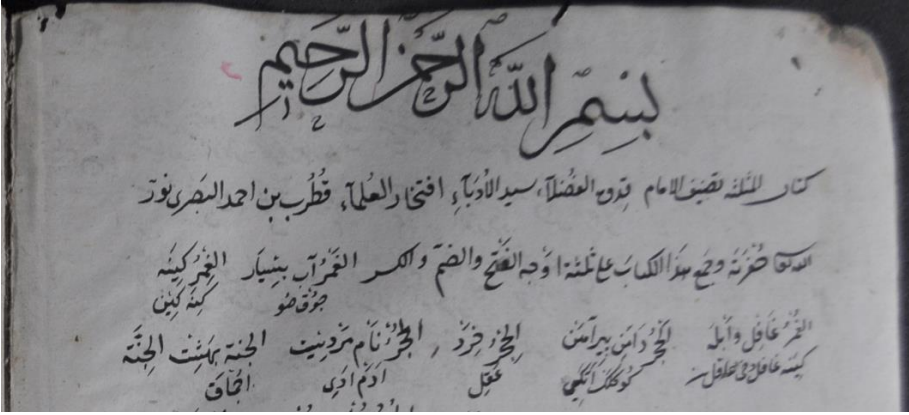 بسم الله الرحمن الرحيم
كتاب المثلثة تصنيف الامام قدوة الفضلآء سيد الأدبآءِ افتخار العُلمآء قُطْرب بن احمد البصرى نوّر
الله تعا حُفْرتَهُ وجمع هذا الكتابَ على ثلثة اوجه الفَتْح والضم والكسر الغَمْر آب بِسْيار الغِمْر كينه
جوق صو كينه كين
الغُمْر غافِل وابْلَه الحَجْر دامَن پيرآمَن الحِجْر خِرَدْ الحُجْر نام مردينيت الجَنة بهشت الجِنَّة
كوكلك عقل ادم ادى اجماق